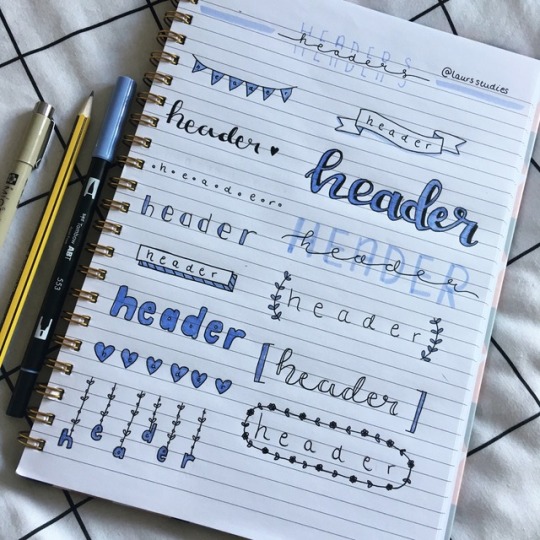 HEADERS
headers
HEADERS
@laursstudies
header
header
header
header
header
HEADER
header
header
header
header
header
header
header
header
ABT
553